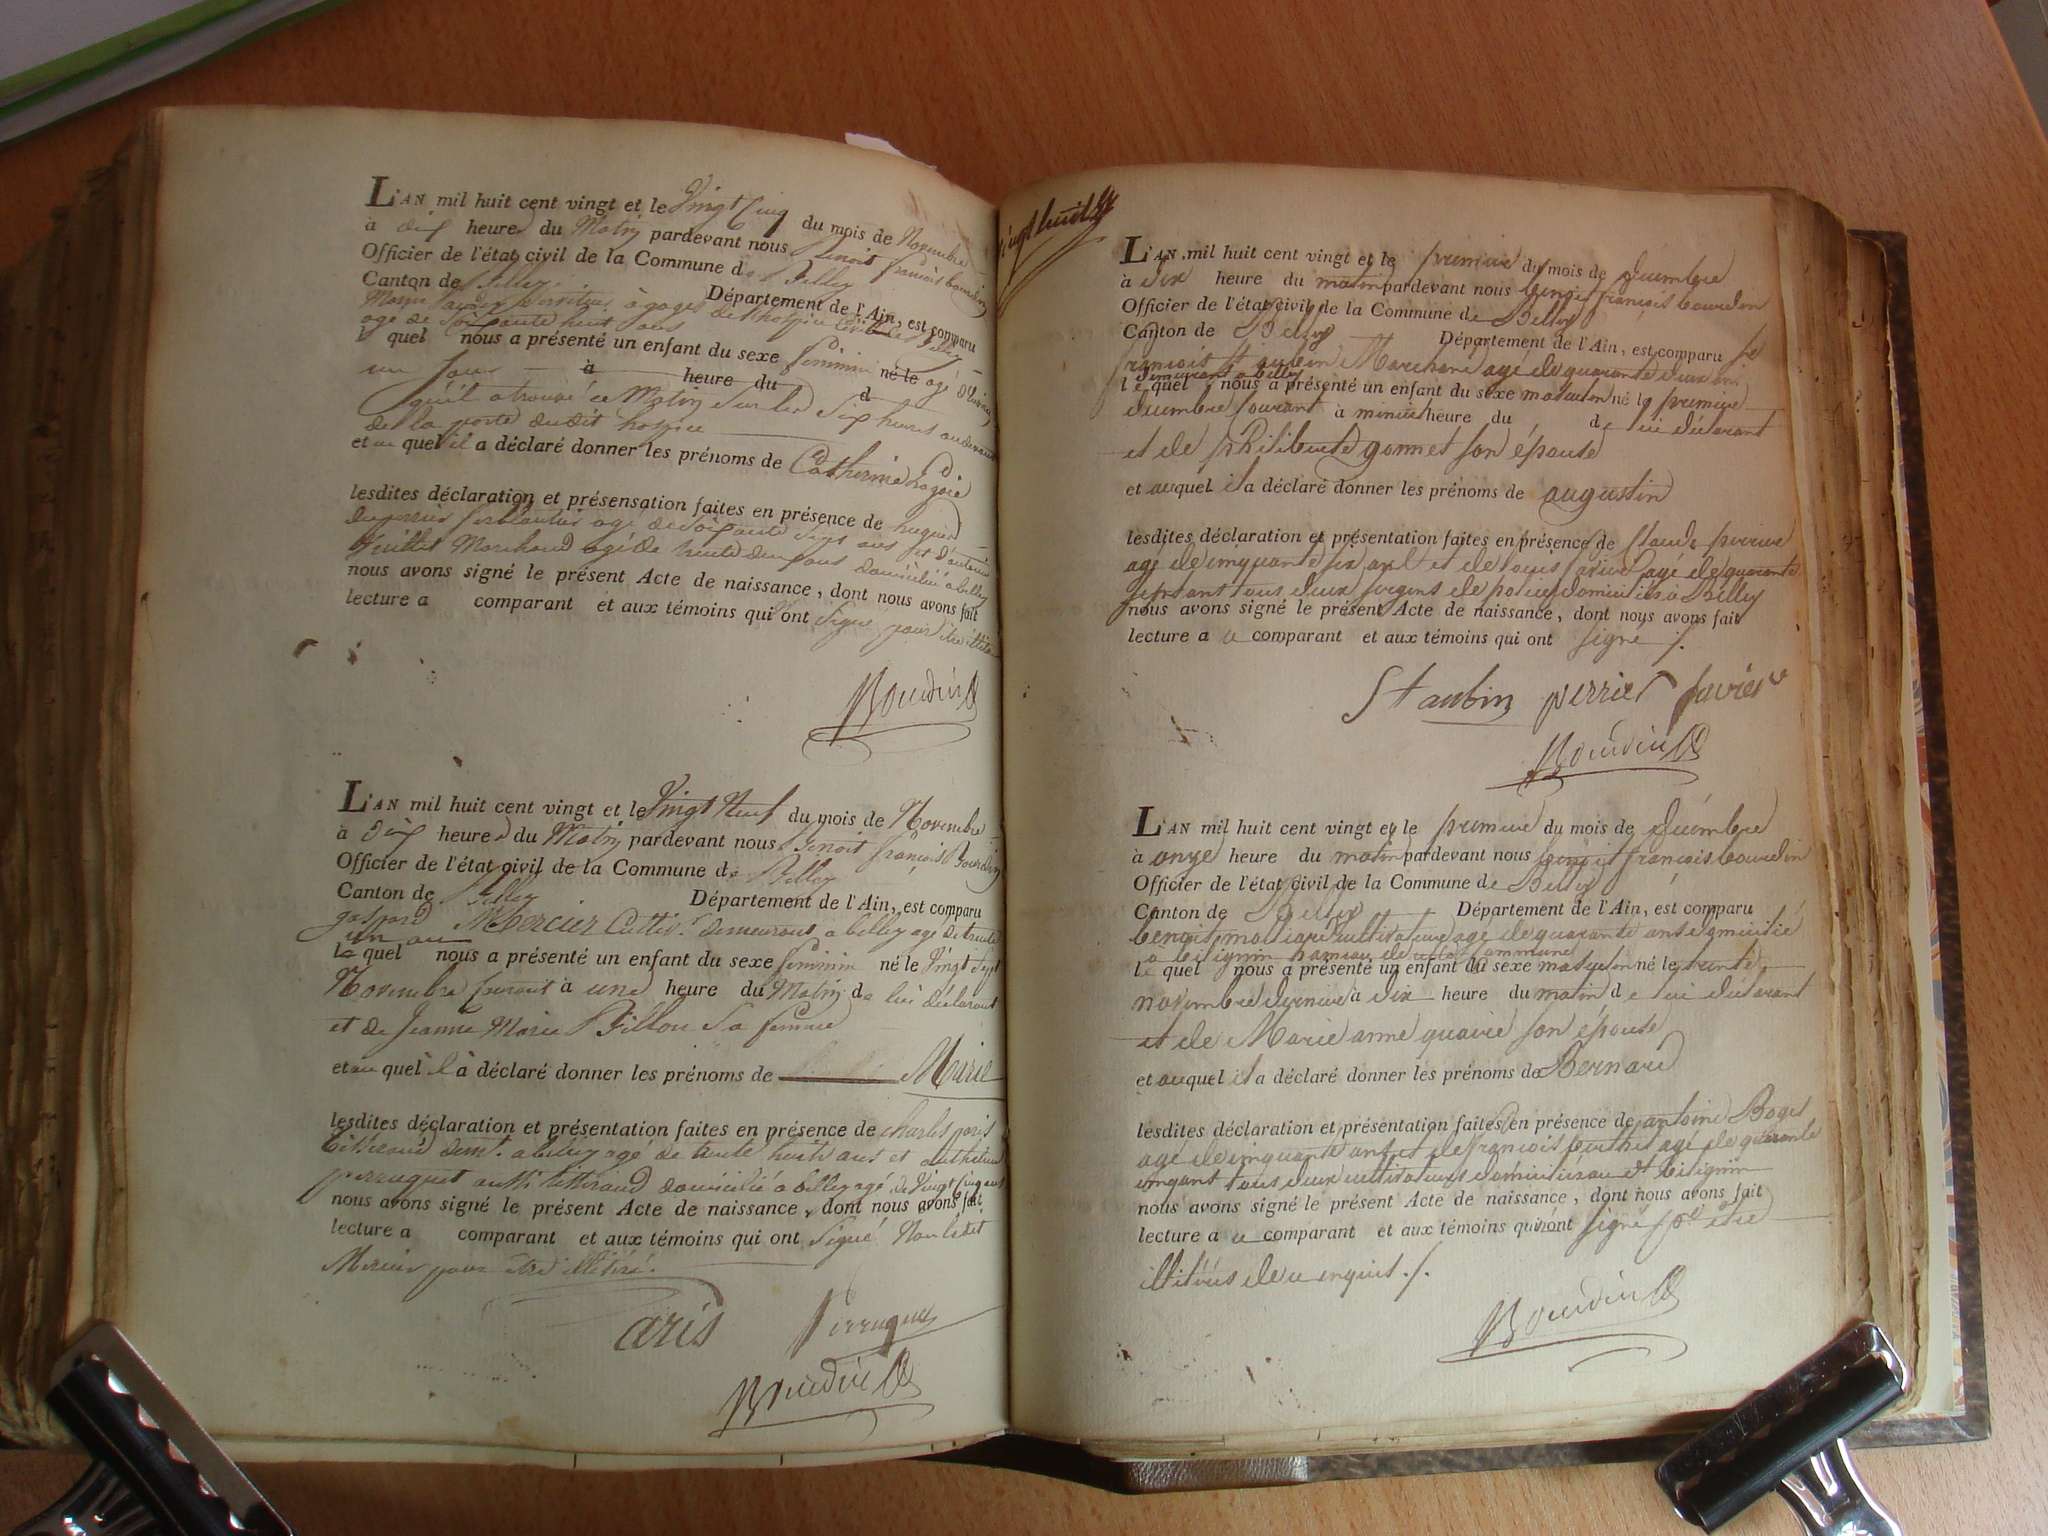 L'AN mil huit cent vingt et le Vingt Cinq du mois de Novembre
à dix heures du Matin pardevant nous Benoit françois bourdin
Officier de l'état civil de la Commune de Belley
Canton de Belley Département de l'Ain, est comparu
Marie serviteur à gages de l'hospice civil de Belley
agé de soixante huit ans
l quel nous a présenté un enfant du sexe féminin né le agé d'environ
un jour à heure du d
qu'il a trouvé ce Matin sur les six heures au devant
de la porte dudit hospice
et au quel il a déclaré donner les prénoms de Catherine
lesdites déclaration et présensation faites en présence de
ferblantier agé de soixante sept ans et d'antoine
Marchand agé de trente deux ans domicilié à belley
nous avons signé le présent Acte de naissance, dont nous avons fait
lecture a comparant et aux témoins qui ont signé pour être
Bourdin
L'AN mil huit cent vingt et le Vingt Neuf du mois de Novembre
à dix heures du Matin pardevant nous Benoit françois Bourdin
Officier de l'état civil de la Commune de Belley
Canton de Belley Département de l'Ain, est comparu
gaspard Mercier Cultiv.r demeurant a belley agé de trente
un an
le quel nous a présenté un enfant du sexe féminin né le Vingt sept
Novembre courant à une heure du Matin de lui déclarant
et de Jeanne Marie Billon sa femme
et au quel il à déclaré donner les prénoms de Marie
lesdites déclaration et présentation faites en présence de charles paris
demt. a belley agé de trente huit ans et anthelme
perruquet domicilié a belley agé de Vingt cinq ans
nous avons signé le présent Acte de naissance, dont nous avons fait
lecture a comparant et aux témoins qui ont signé Non ledit
Mercier pour être illitéré.
Paris Perruquet
Bourdin
vingt huit
L'AN mil huit cent vingt et le premier du mois de décembre
à dix heure du matin pardevant nous benoit françois bourdin
Officier de l'état civil de la Commune de Belley
Canton de Belley Département de l'Ain, est comparu
françois St aubin Marchand agé de quarante deux ans
demeurant a belley
le quel nous a présenté un enfant du sexe masculin né le premier
décembre courant à minuit heure du de lui déclarant
et de philiberte gonnet son épouse
et auquel il a déclaré donner les prénoms de augustin
lesdites déclaration et présentation faites en présence de Claude perrier
agé de cinquante six ans et de louis favier agé de quarante
sept ans tous deux sergens de police domiciliés à Belley
nous avons signé le présent Acte de naissance, dont nous avons fait
lecture a ce comparant et aux témoins qui ont signé /.
St aubin perrier favier
Bourdin
L'AN mil huit cent vingt et le premier du mois de décembre
à onze heure du matin pardevant nous benoit françois bourdin
Officier de l'état civil de la Commune de Belley
Canton de Belley Département de l'Ain, est comparu
benoit cultivateur agé de quarante ans domicilié
a hameau de cette commune
le quel nous a présenté un enfant du sexe masculin né le trente
novembre dernier à dix heure du matin de lui déclarant
et de Marie anne son épouse
et auquel il a déclaré donner les prénoms de Bernard
lesdites déclaration et présentation faites en présence de antoine
agé de cinquante ans et de françois agé de quarante
cinq ans tous deux cultivateurs domiciliés au dit
nous avons signé le présent Acte de naissance, dont nous avons fait
lecture a ce comparant et aux témoins qui n'ont signé p.r être
illitérés de ce enquis ./.
Bourdin